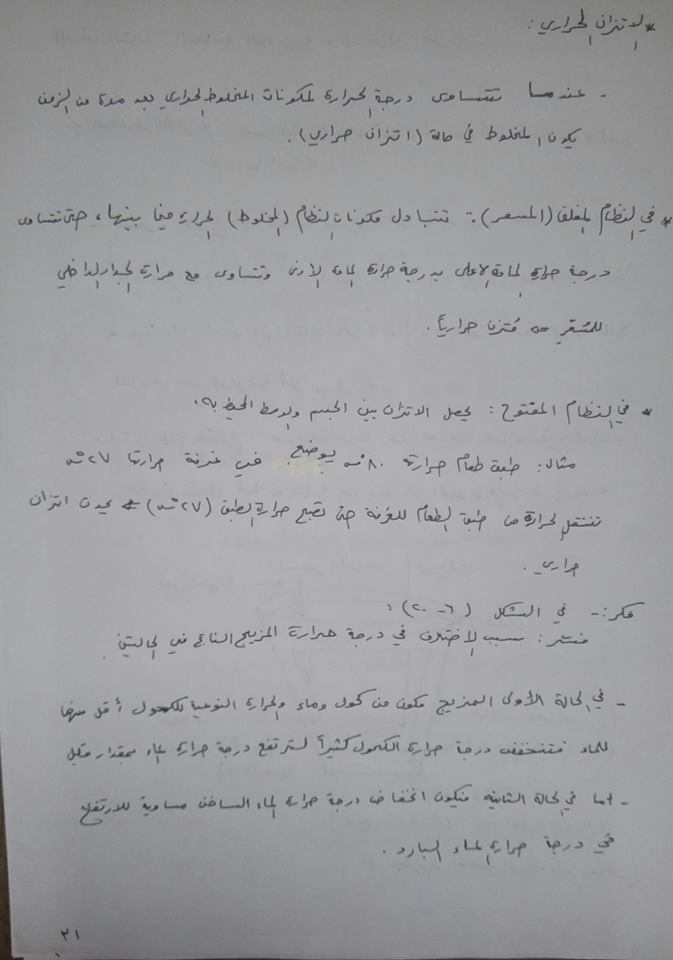 * الاتزان الحراري :
- عندما تتساوى درجة الحرارة لمكونات المخلوط الحراري بعد مدة من الزمن
يكون المخلوط في حالة (اتزان حراري).
* في النظام المغلق (المسعر) : تتبادل مكونات النظام (المخلوط) الحرارة فيما بينها، حتى تتساوى
درجة حرارة المادة الأعلى بدرجة حرارة المادة الأدنى وتتساوى مع حرارة الجدار الداخلي
للمسعر مُتزن حرارياً.
* في النظام المفتوح : يحصل الاتزان بين الجسم والوسط المحيط به.
مثال : طبق طعام حرارته ٨٠ °س يوضع في غرفة حرارتها ٢٧ °س
تنتقل الحرارة من طبق الطعام للغرفة حتى تصبح حرارة الطبق (٢٧ °س) يحدث اتزان
حراري.
فكر :- في الشكل (٦-٢٠) :
فسّر : سبب الاختلاف في درجة حرارة المزيج الناتج في الحالتين
- في الحالة الأولى المزيج مكون من كحول وماء والحرارة النوعية للكحول أقل منها
للماء فتنخفض درجة حرارة الكحول كثيراً لترتفع درجة حرارة الماء بمقدار قليل
- أما في الحالة الثانية فيكون انخفاض درجة حرارة الماء الساخن مساوية للارتفاع
في درجة حرارة الماء البارد.
٣١